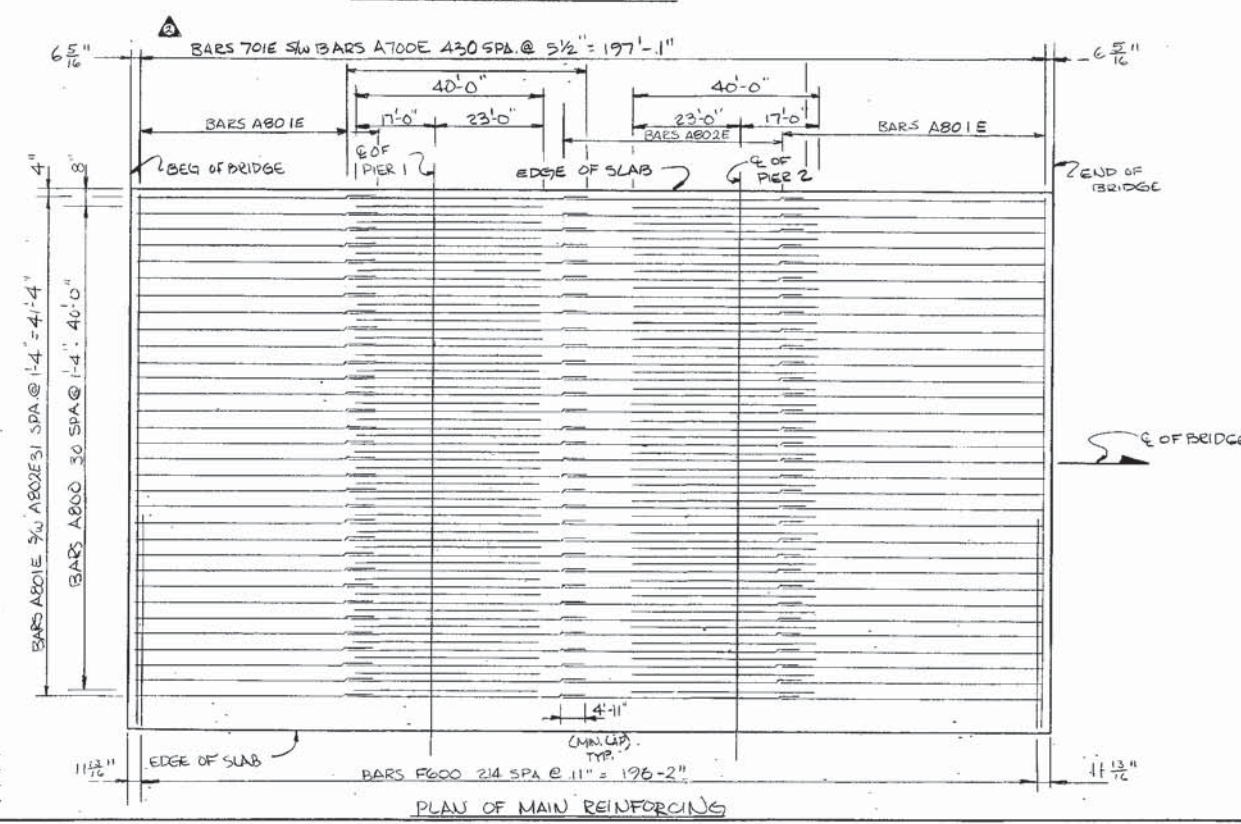 2
BARS 701E S/W BARS A700E 430 SPA. @ 5 1/2" = 197'-1"
6 5/16"
6 5/16"
40'-0"
40'-0"
17'-0"
23'-0"
23'-0"
17'-0"
BARS A801E
BARS A802E
BARS A801E
4"
8"
BEG OF BRIDGE
℄ OF PIER 1
EDGE OF SLAB
℄ OF PIER 2
END OF BRIDGE
BARS A801E S/W A802E 31 SPA. @ 1'-4" = 41'-4"
BARS A800 30 SPA @ 1'-4" = 40'-0"
℄ OF BRIDGE
4'-11"
(MIN. LAP)
TYP.
11 13/16"
EDGE OF SLAB
BARS F600 214 SPA @ 11" = 196-2"
11 13/16"
PLAN OF MAIN REINFORCING